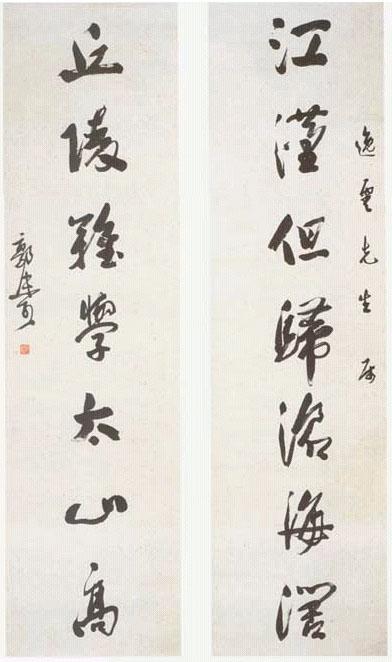 逸雲先生属
江漢但歸滄海濶
丘陵難學太山高
郭